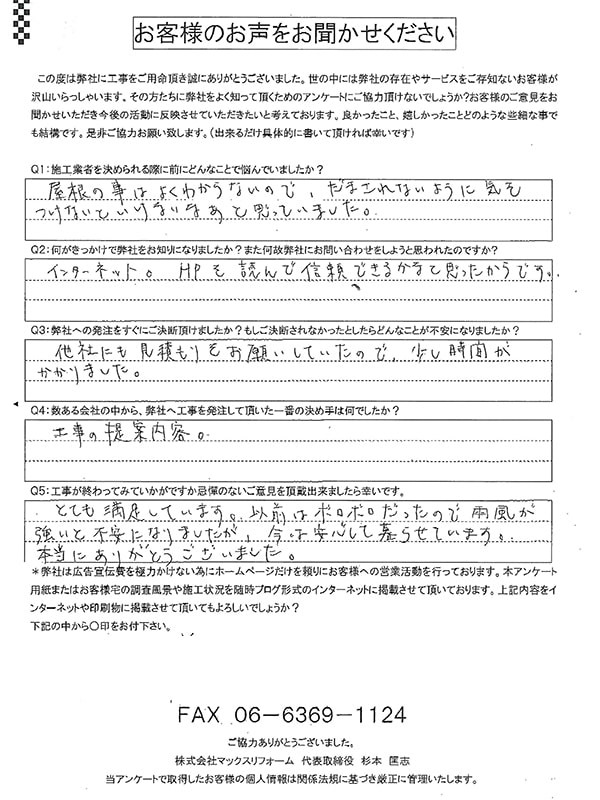 お客様のお声をお聞かせください
この度は弊社に工事をご用命頂き誠にありがとうございました。世の中には弊社の存在やサービスをご存知ないお客様が
沢山いらっしゃいます。その方たちに弊社をよく知って頂くためのアンケートにご協力頂けないでしょうか?お客様のご意見をお
聞かせいただき今後の活動に反映させていただきたいと考えております。良かったこと、嬉しかったことどのような些細な事で
も結構です。是非ご協力お願い致します。(出来るだけ具体的に書いて頂ければ幸いです)
Q1:施工業者を決められる際に前にどんなことで悩んでいましたか?
屋根の事はよくわからないので、だまされないように気を
つけないといけないなあと思っていました。
Q2:何がきっかけで弊社をお知りになりましたか?また何故弊社にお問い合わせをしようと思われたのですか?
インターネット。 HPを読んで信頼できるかなと思ったからです。
Q3:弊社への発注をすぐにご決断頂けましたか?もしご決断されなかったとしたらどんなことが不安になりましたか?
他社にも見積もりをお願いしていたので、少し時間が
かかりました。
Q4:数ある会社の中から、弊社へ工事を発注して頂いた一番の決め手は何でしたか?
工事の提案内容。
Q5:工事が終わってみていかがですか忌憚のないご意見を頂戴出来ましたら幸いです。
とても満足しています。以前はボロボロだったので雨風が
強いと不安になりましたが、今は安心して暮らせています。
本当にありがとうございました。
*弊社は広告宣伝費を極力かけない為にホームページだけを頼りにお客様への営業活動を行っております。本アンケート
用紙またはお客様宅の調査風景や施工状況を随時ブログ形式のインターネットに掲載させて頂いております。上記内容をイ
ンターネットや印刷物に掲載させて頂いてもよろしいでしょうか?
下記の中から〇印をお付下さい。
FAX 06-6369-1124
ご協力ありがとうございました。
株式会社マックスリフォーム 代表取締役 杉本 匡志
当アンケートで取得したお客様の個人情報は関係法規に基づき厳正に管理いたします。